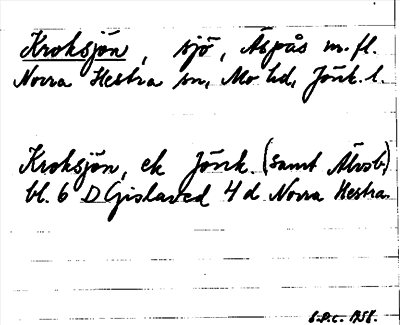 Kroksjön, sjö, Åspås m.fl.
Norra Hestra sn, Mo hd, Jönk. l.
Kroksjön, ek Jönk. (samt Älvsb.)
bl. 6 D Gislaved 4 d Norra Hestra
S.P.C. 1958.